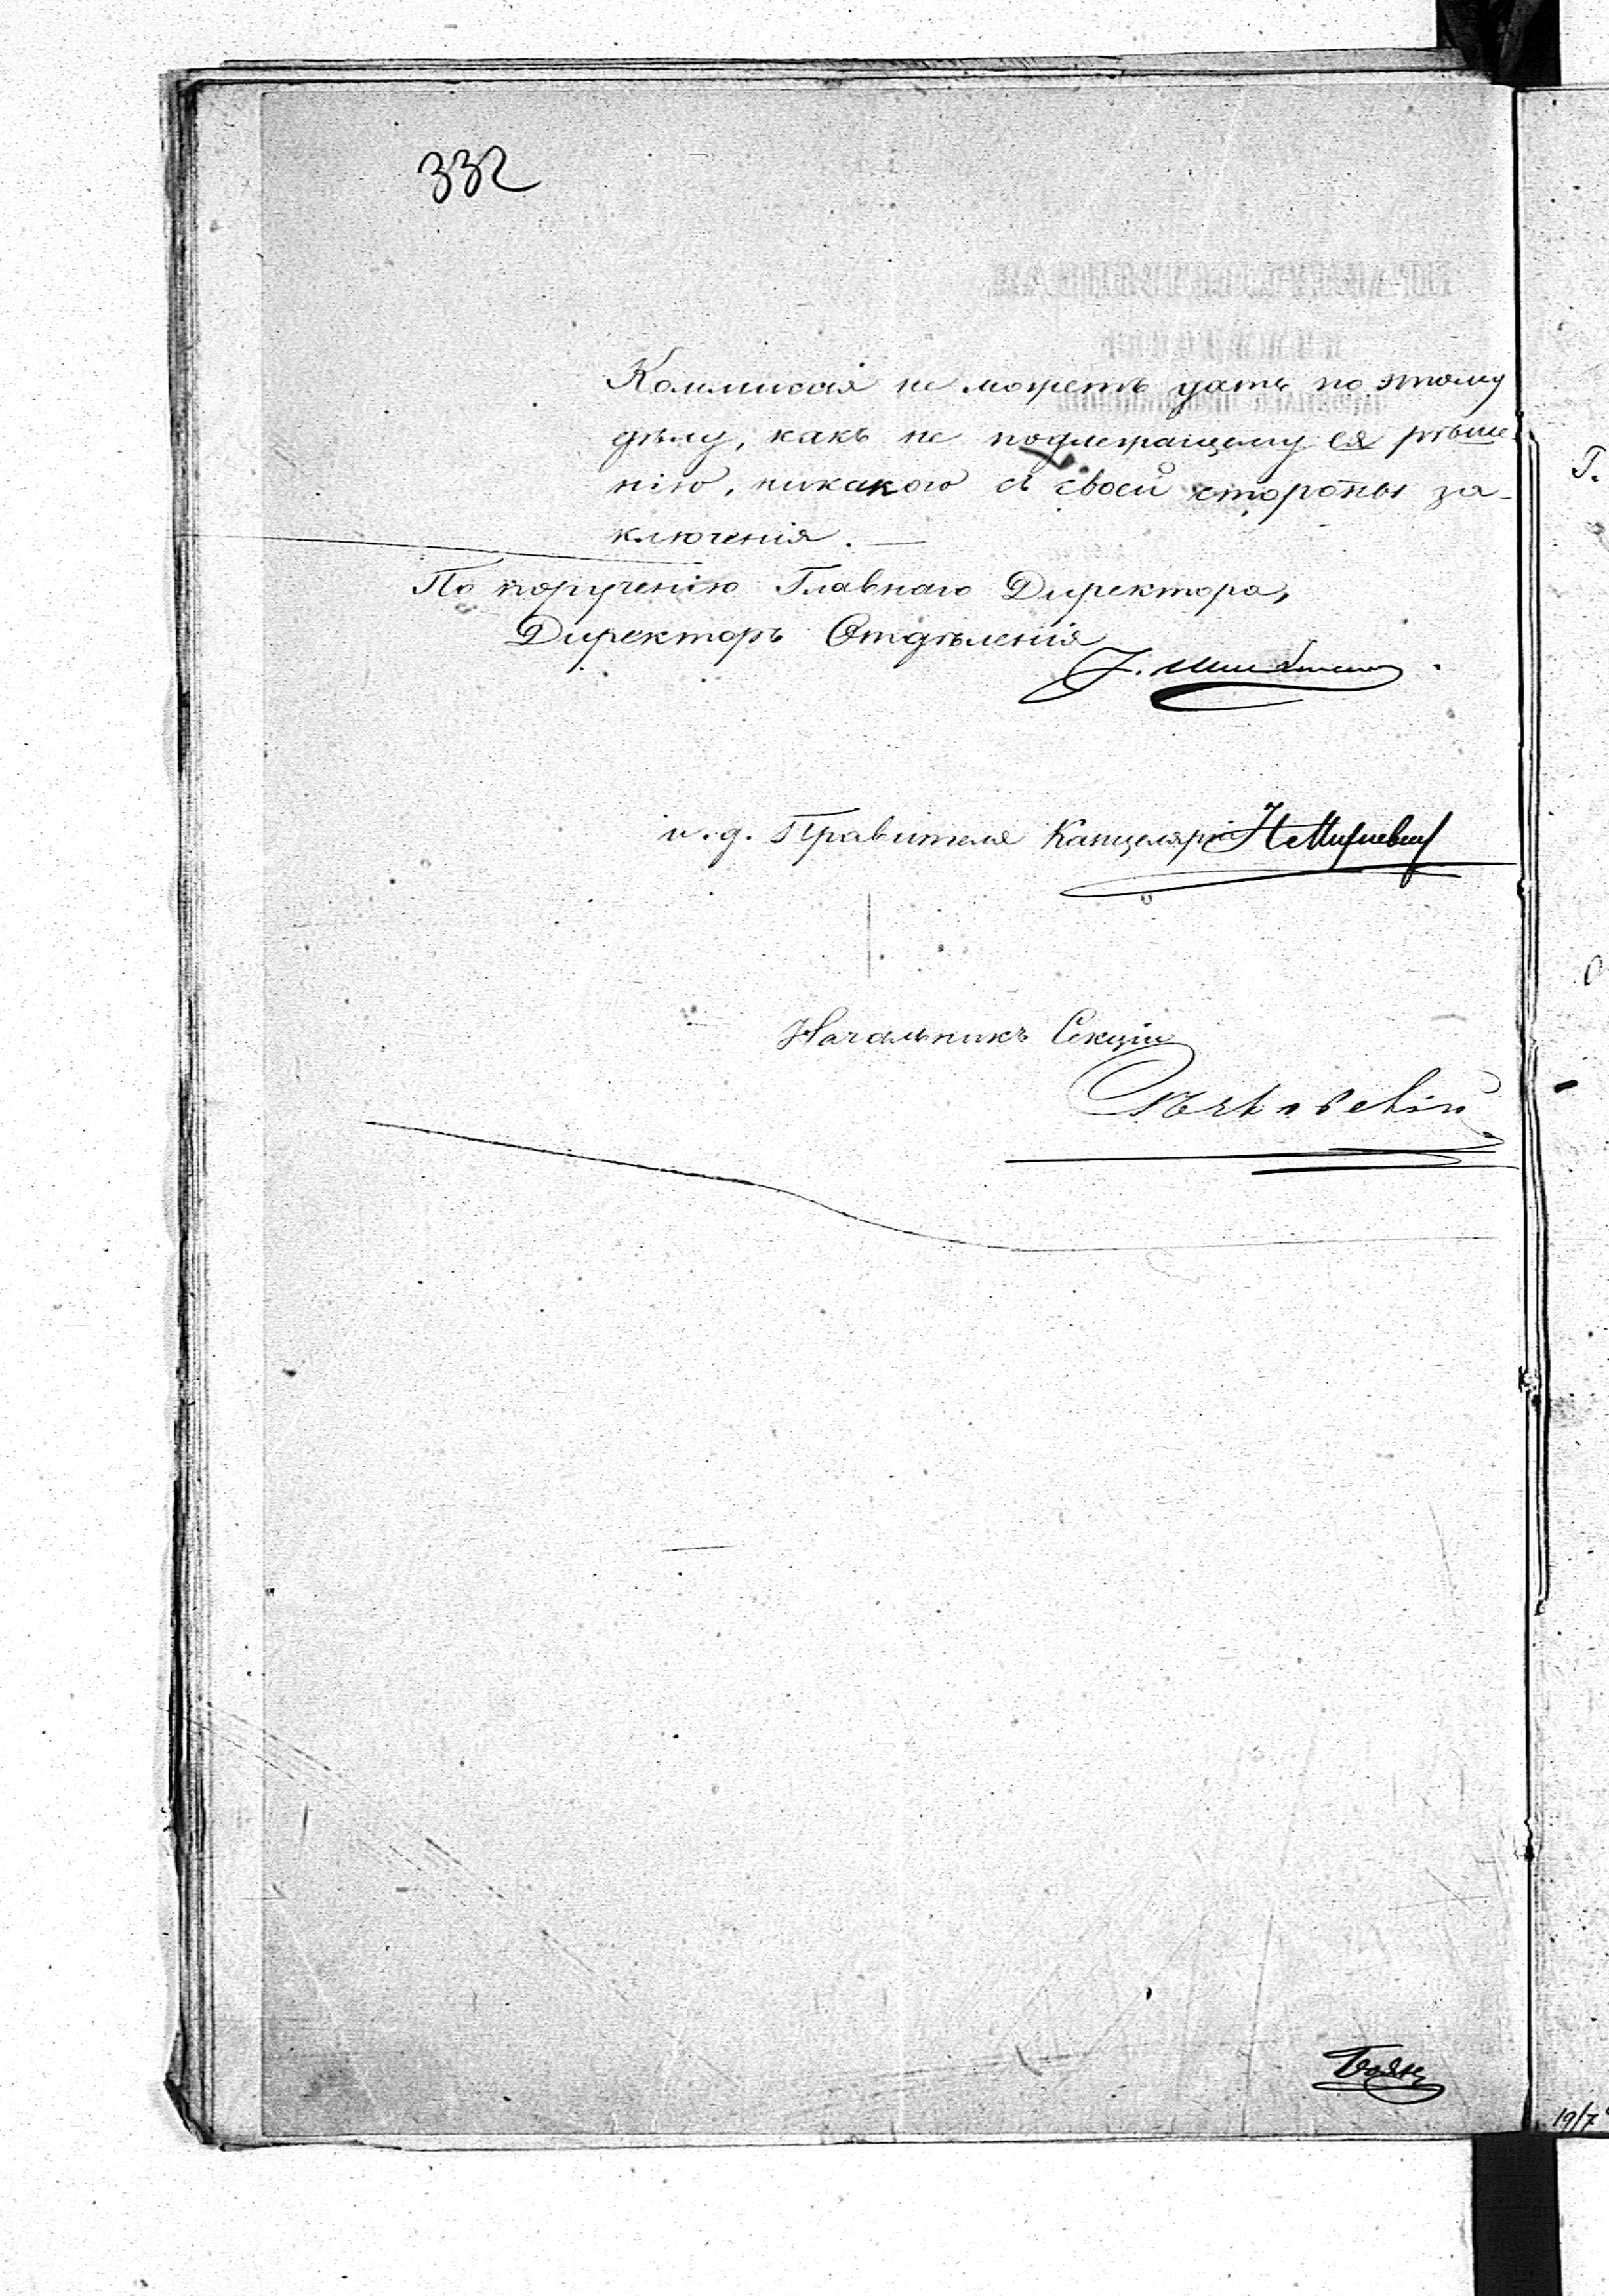 332
Коммиссія не можетъ дать по этому
дѣлу, какъ не подлежащему ея рѣше
нію, никакого съ своей стороны за-
ключенія. —
По порученію Главнаго Директора,
Директоръ Отдѣленія
и. д. Правителя Канцеляріи
Начальникъ Секціи
19/7